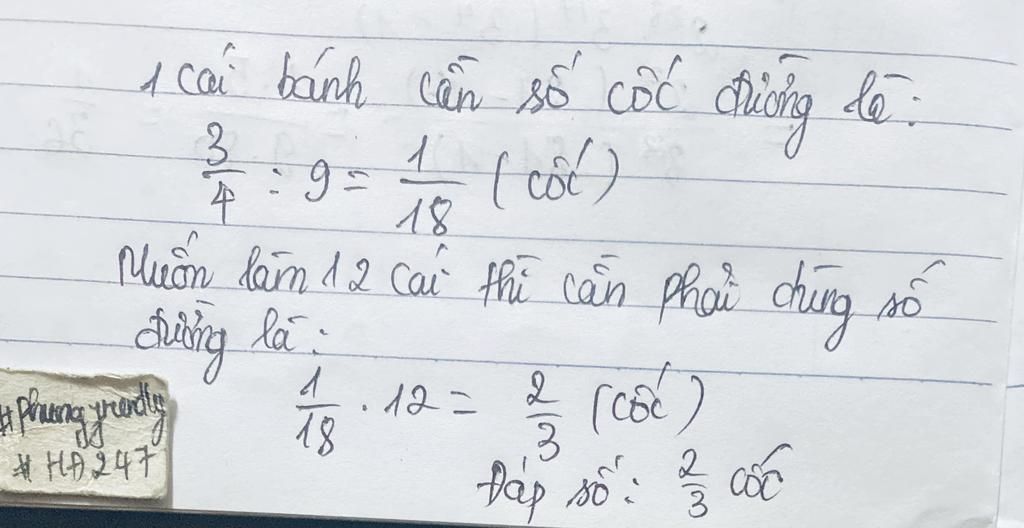 1 cái bánh cần số cốc đường là:
3/4 : 9 = 1/18 (cốc)
Muốn làm 12 cái thì cần phải dùng số
đường là:
1/18 . 12 = 2/3 (cốc)
Đáp số: 2/3 cốc
#HĐ247